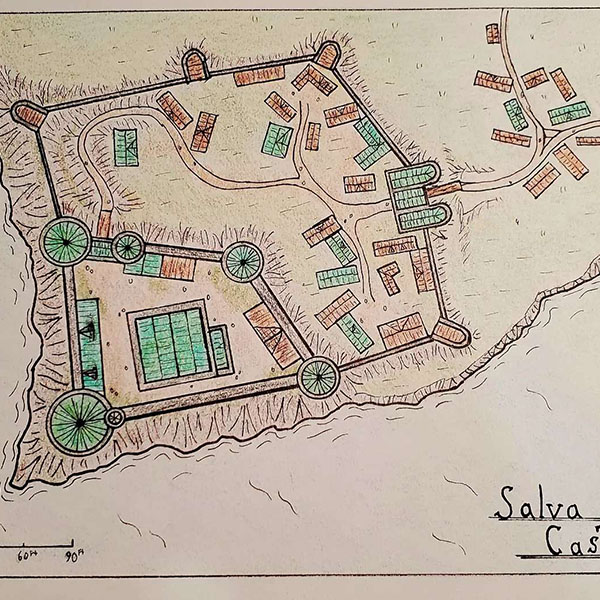 Salva
Cas
60ft 90ft